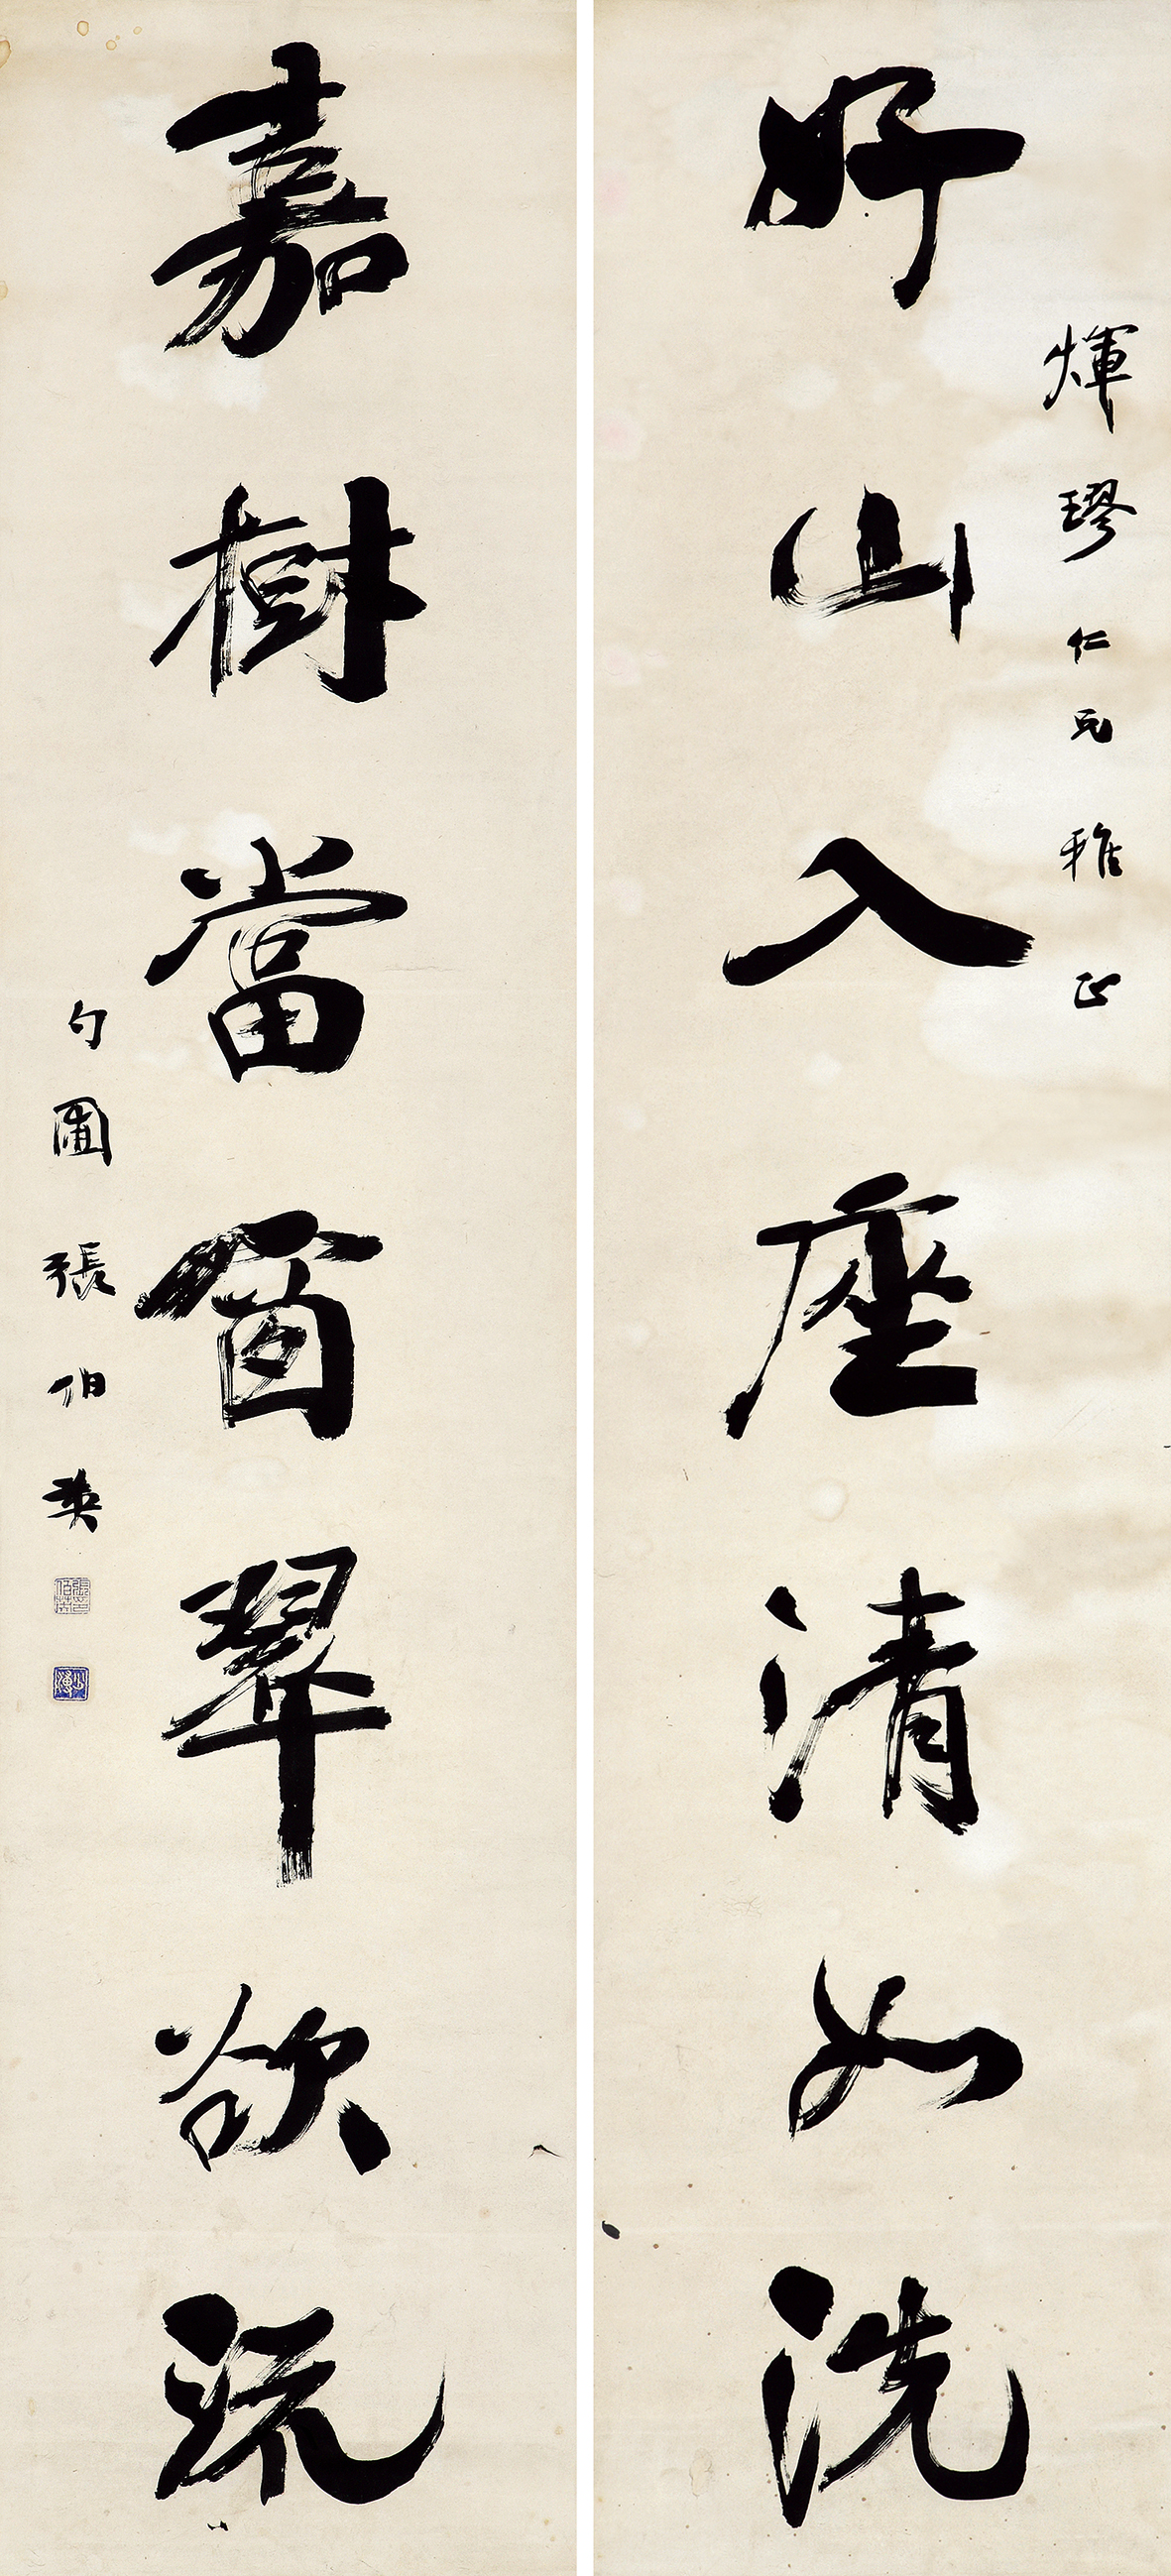 煇璆仁兄雅正
好山入座清如洗
嘉樹當窗翠欲流
勺圃張伯英